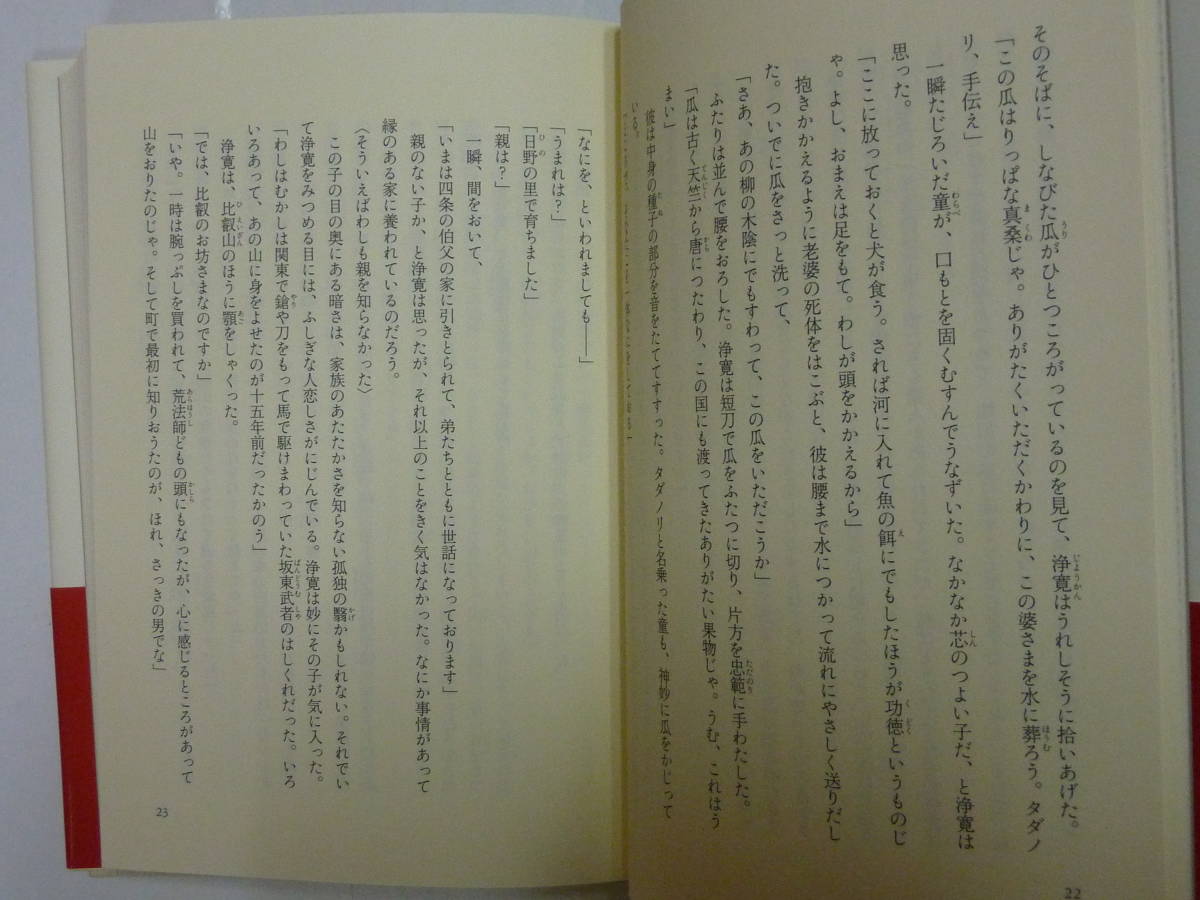 そのそばに、しなびた瓜がひとつころがっているのを見て、浄寛はうれしそうに拾いあげた。
「この瓜はりっぱな真桑じゃ。ありがたくいただくかわりに、この婆さまを水に葬ろう。タダノ
リ、手伝え」
一瞬たじろいだ童が、口もとを固くむすんでうなずいた。なかなか芯のつよい子だ、と浄寛は
思った。
「ここに放っておくと犬が食う。されば河に入れて魚の餌にでもしたほうが功徳というものじ
ゃ。よし、おまえは足をもて。わしが頭をかかえるから」
抱きかかえるように老婆の死体をはこぶと、彼は腰まで水につかって流れにやさしく送りだし
た。ついでに瓜をさっと洗って、
「さあ、あの柳の木陰にでもすわって、この瓜をいただこうか」
ふたりは並んで腰をおろした。浄寛は短刀で瓜をふたつに切り、片方を忠範に手わたした。
「瓜は古く天竺から唐につたわり、この国にも渡ってきたありがたい果物じゃ。うむ、これはう
まい」
彼は中身の種子の部分を音をたててすすった。タダノリと名乗った童も、神妙に瓜をかじって
いる。
22
「なにを、といわれましても――」
「うまれは？」
「日野の里で育ちました」
「親は？」
一瞬、間をおいて、
「いまは四条の伯父の家に引きとられて、弟たちとともに世話になっております」
親のない子か、と浄寛は思ったが、それ以上のことをきく気はなかった。なにか事情があって
縁のある家に養われているのだろう。
〈そういえばわしも親を知らなかった〉
この子の目の奥にある暗さは、家族のあたたかさを知らない孤独の翳かもしれない。それでい
て浄寛をみつめる目には、ふしぎな人恋しさがにじんでいる。浄寛は妙にその子が気に入った。
「わしはむかしは関東で鎗や刀をもって馬で駆けまわっていた坂東武者のはしくれだった。いろ
いろあって、あの山に身をよせたのが十五年前だったかのう」
浄寛は、比叡山のほうに顎をしゃくった。
「では、比叡のお坊さまなのですか」
「いや。一時は腕っぷしを買われて、荒法師どもの頭にもなったが、心に感じるところがあって
山をおりたのじゃ。そして町で最初に知りおうたのが、ほれ、さっきの男でな」
23